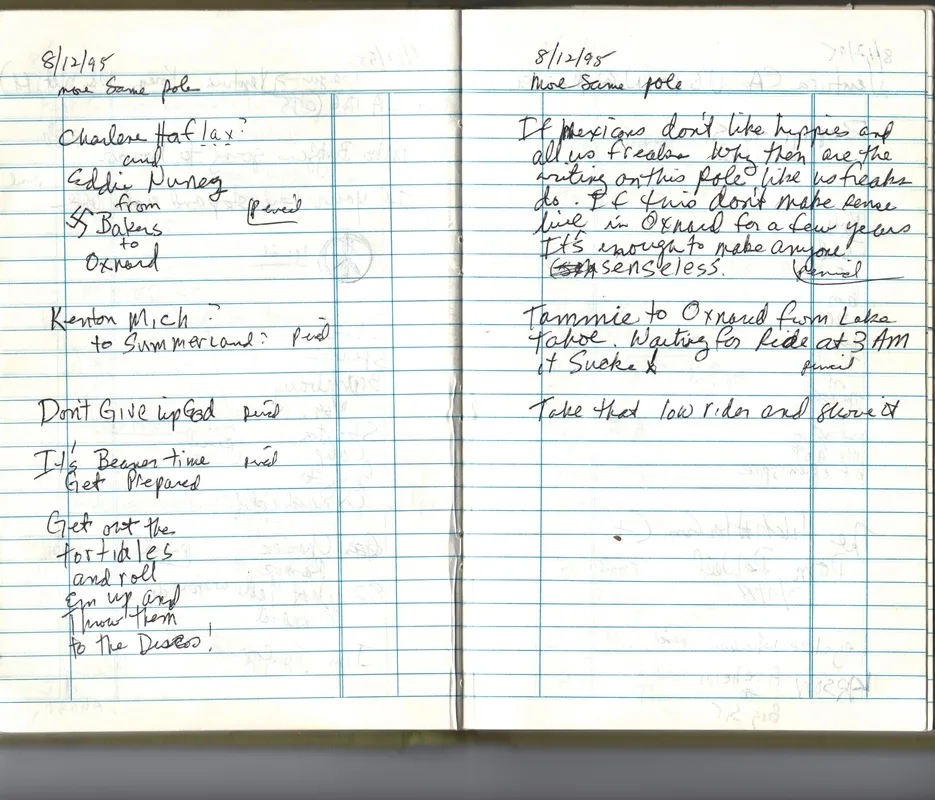 8/12/95
more Same pole
Charlene Haflax?
and
Eddie Nuneg
from
Bakers
to
Oxnard
pencil
Kenton Mich?
to Summerland? pencil
Don't Give up God pencil
It's Beaner time pencil
Get Prepared
Get out the
tortialles
and roll
Em up and
Throw them
to the Discos!
8/12/95
more Same pole
If Mexicans don't like hippies and
all us freaks Why then are the
writing on this pole like us freaks
do. If this don't make sense
live in Oxnard for a few years
It's enough to make anyone
senseless.
pencil
Tammie to Oxnard from Lake
Tahoe. Waiting for Ride at 3 AM
it Sucks
pencil
Take that low rider and shove it